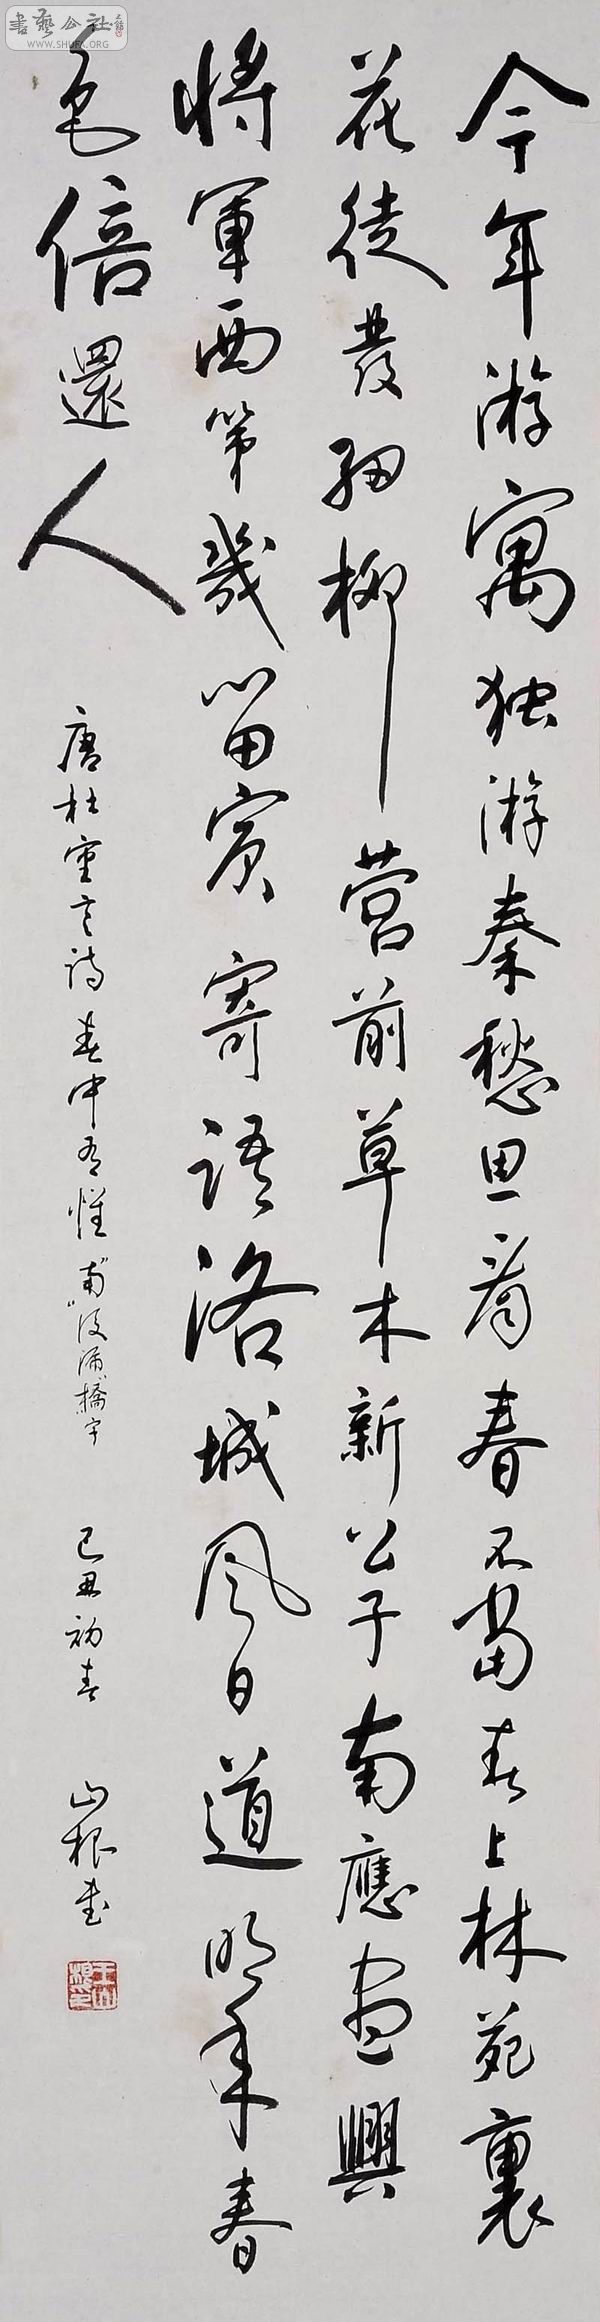 書藝公社
WWW.SHUFA.ORG
今年游寓独游秦愁思看春不當春上林苑裏
花徒發細柳營前草木新公子南應盡興
將軍西第幾留賓寄語洛城風日道明年春
色倍還人
唐杜審言詩春中有懷 "南"後漏"橋"字 己丑初春 山根書
王山根印